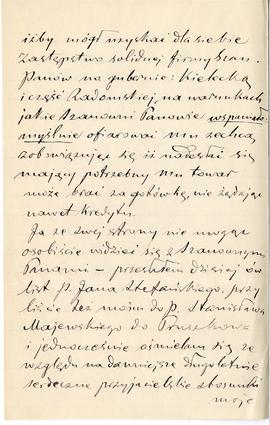 iżby mógł uzyskać dla siebie
Zastępstwo solidnej firmy Szan.
Panów na gubernie: Kielecką
i część Radomskiej, na warunkach
jakie Szanowni Panowie wspaniało-
myślnie ofiarować mu zechcą
zobowiązując się iż należeć się
mający potrzebny mu towar
może brać za gotówkę, nie żądając
nawet Kredytu.
Ja ze swej strony nie mogąc
osobiście widzieć się z Szanownymi
Panami – przesłałem dzisiaj
list p. Jana Stefańskiego, przy
liście też moim do p. Stanisława
Majewskiego do Pruszkowa
i jednocześnie ośmielam się ze
względu na dawniejsze długoletnie
serdeczne przyjacielskie stosunki
moje